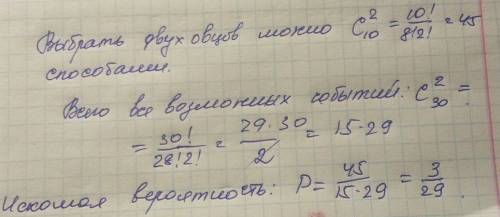 Выбрать двух овцов можно C₁₀² = 10!/8!2! = 45
способами.
Всего все возможных событий: C₃₀² =
= 30!/28!2! = 29·30/2 = 15·29
Искомая вероятность: P = 45/15·29 = 3/29.